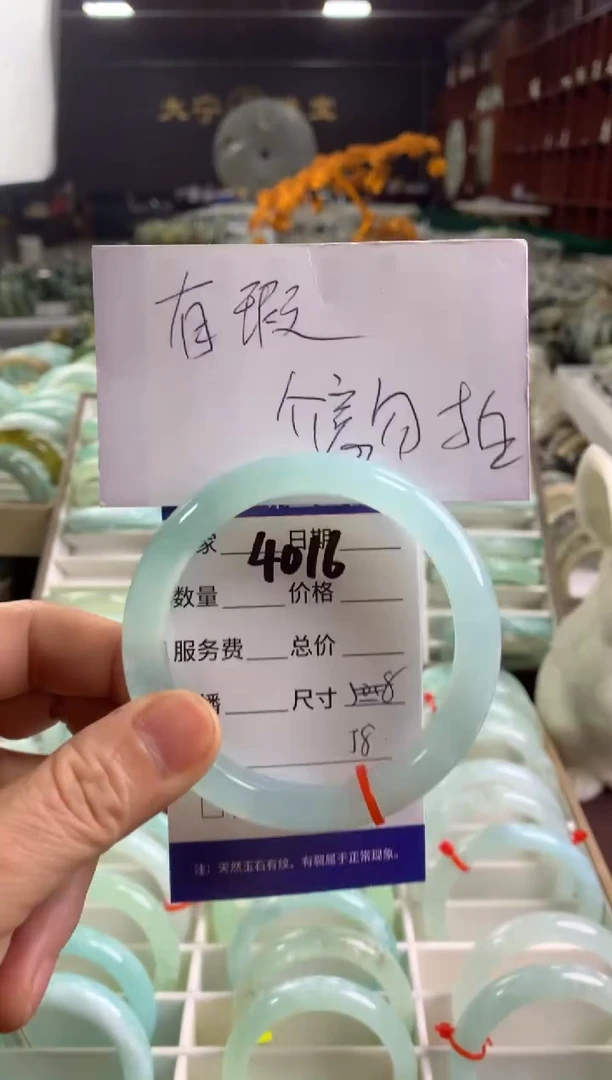 大宁
宝
有瑕
介意勿拍
家 日期
4016
数量 价格
服务费 总价
播 尺寸
58
注：天然玉石有纹、有裂属于正常现象。